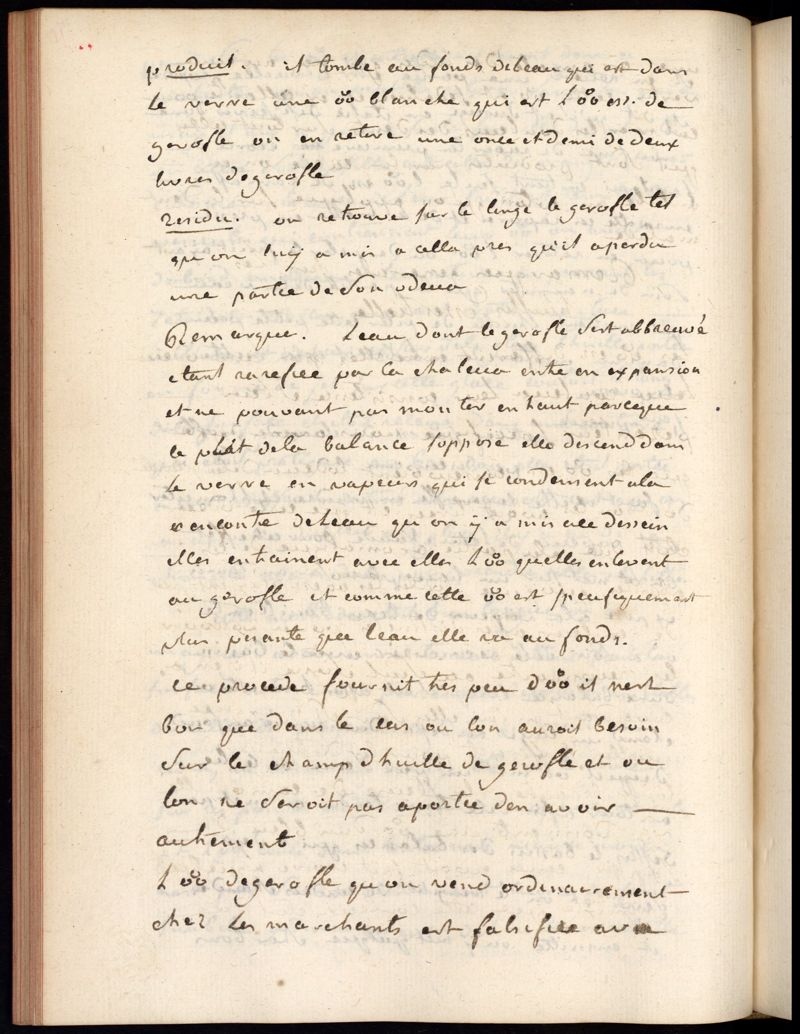 produit. il tombe au fonds deleau qui est dans
le verre une o°o blanche qui est l o°o ess. de
gerofle on en retire une once et demi de deux
livres de gerofle
residu. on retrouve sur le linge le gerofle tel
qu on luy a mis a cella pres qu'il a perdu
une partie de son odeur
Remarque. Leau dont le gerofle sest abbreuvé
etant rarefiee par la chaleur entre en expansion
et ne pouvant pas monter en haut parceque
le plat dela balance soppose elle descend dans
le verre en vapeurs qui se condensent ala
rencontre deleau qu on y a mis a ce dessein
elles entrainent avec elles l o°o quelles enlevent
au gerofle et comme cette o°o est specifiquement
plus pesante que leau elle va au fonds.
ce procede fournit tres peu d o°o il nest
bon que dans le cas ou lon auroit besoin
sur le champ d huille de gerofle et ou
lon ne seroit pas a portee den avoir —
autrement
L o°o de gerofle qu on vend ordinairement
chez les marchants est falsifiee avec